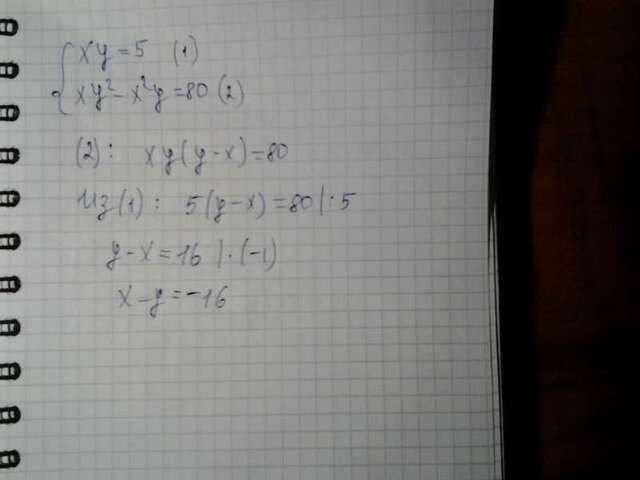 { xy = 5 (1)
xy² - x²y = 80 (2)
(2): xy(y-x) = 80
Из (1): 5(y-x) = 80 |:5
y-x = 16 |·(-1)
x-y = -16